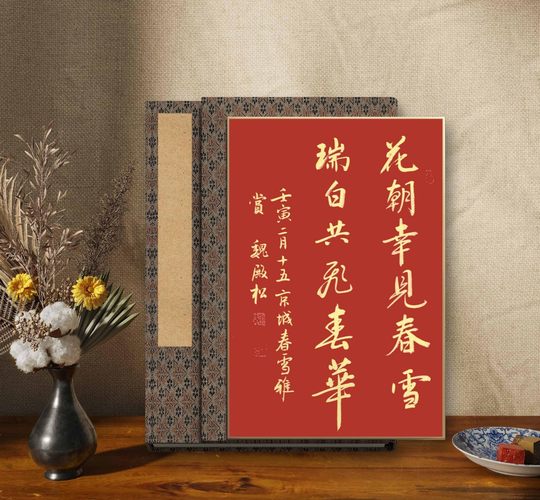 花朝幸見春雪
瑞白共飛春華
壬寅二月十五京城春雪雅
賞 魏殿松